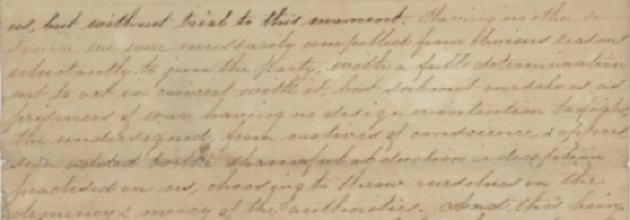 us, but without trial to this moment. Having no other re-
source we were necessarily compelled from obvious reasons
reluctantly to join the party, with a full determination
not to act in concert with it, but submit ourselves as
prisoners of war, having no design or intention to fight
the undersigned, from motives of conscience, &
added to the shameful deception
practised on us, choosing to throw ourselves on the
clemency & mercy of the authorities. And this being